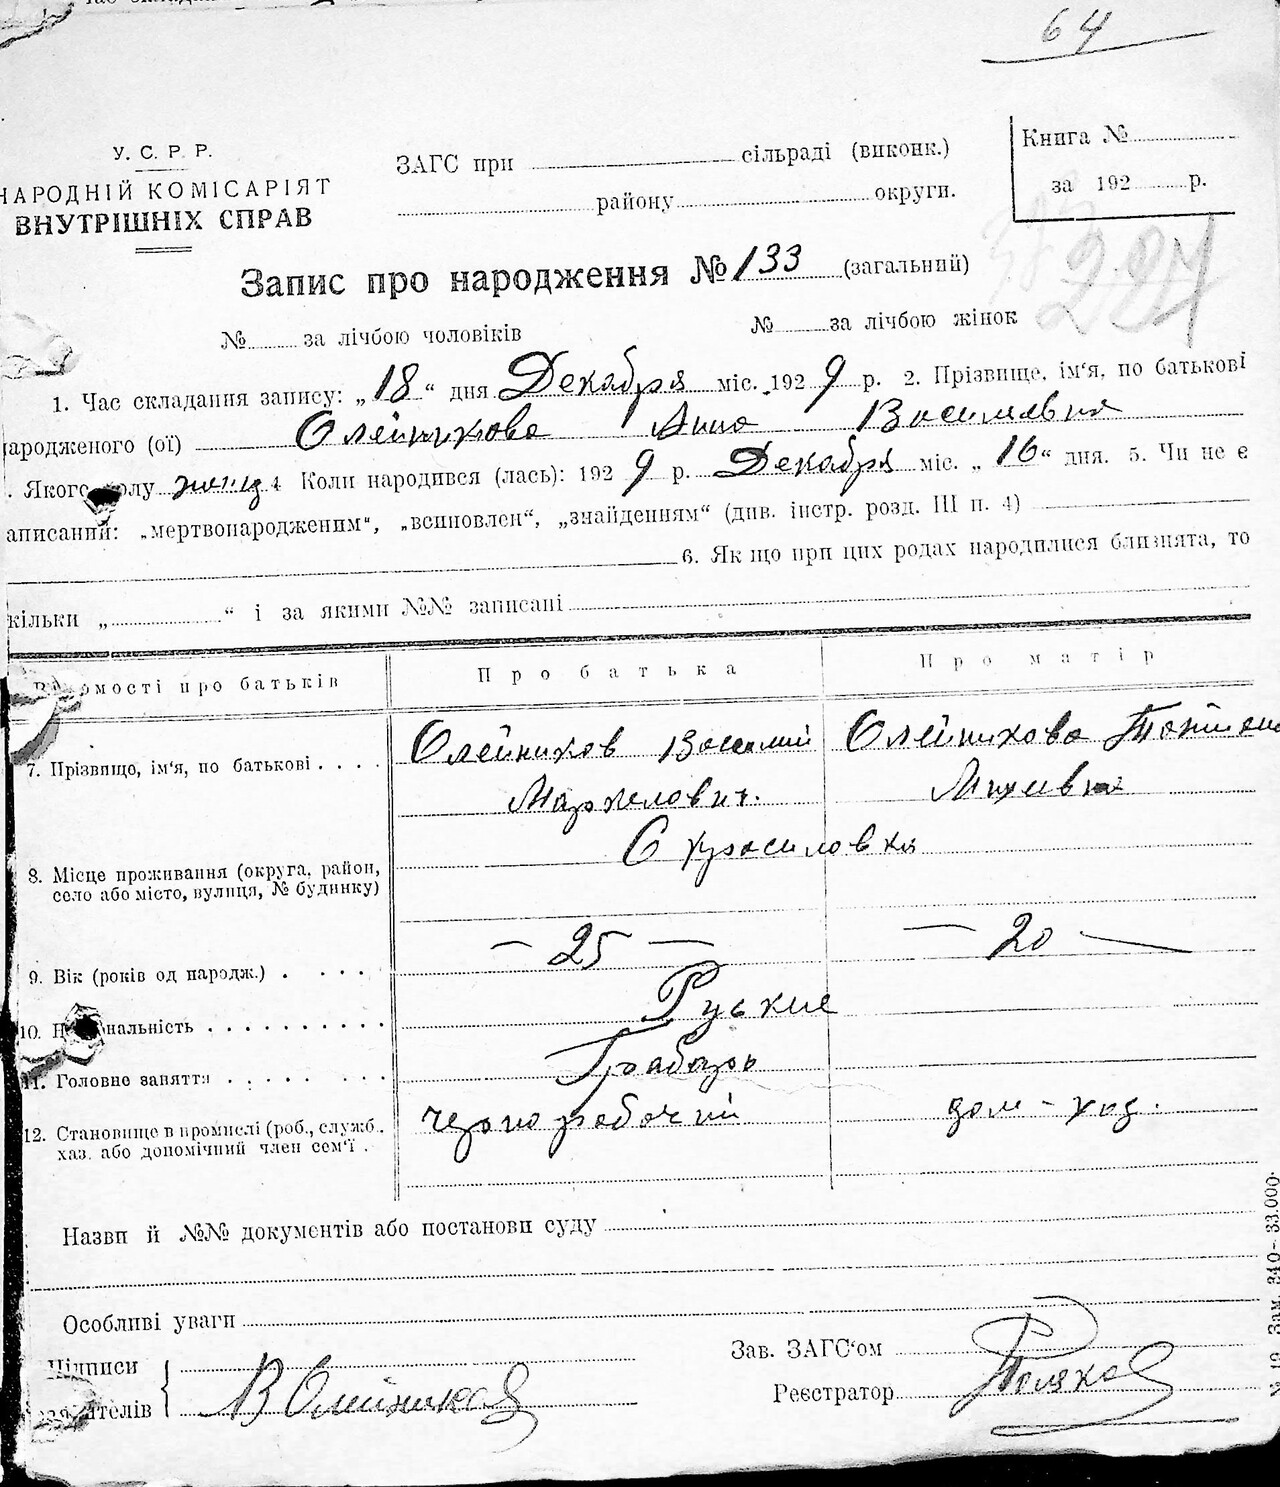 64
У. С. Р. Р.
НАРОДНІЙ КОМІСАРІЯТ
ВНУТРІШНІХ СПРАВ
ЗАГС при сільраді (виконк.)
району округи.
Книга №
за 192 р.
Запис про народження № 133 (загальний)
№ за лічбою чоловіків № за лічбою жінок
1. Час складання запису: „18“ дня Декабря міс. 1929 р. 2. Прізвище, ім'я, по батькові
народженого (ої) Олейникова Анна Васильевна
Якого полу женщ 4 Коли народився (лась): 1929 р. Декабря міс. „16“ дня. 5. Чи не є
аписаний: „мертвонародженим“, „всиновлен“, „знайденням“ (див. інстр. розд. III п. 4)
6. Як що при цих родах народилися близнята, то
кільки „ “ і за якими №№ записані
Відомості про батьків Про батька Про матір
7. Прізвищо, ім'я, по батькові . . . . Олейников Василий Олейникова Татиана
Маркелович.
8. Місце проживання (округа, район,
село або місто, вулиця, № будинку)
9. Вік (років од народж.) . . . . — 25 — — 20 —
10. Національність . . . . . . . . . . Руские
11. Головне заняття . . . . . . . .
12. Становище в промислі (роб., служб., чернорабочий дом-хоз.
хаз. або допомічний член сем'ї .
Назви й №№ документів або постанови суду
Особливі уваги
Підписи
заявителів В Олейников
Зав. ЗАГС'ом
Реєстратор Поляков
№ 19 Зам. 340–33.000.